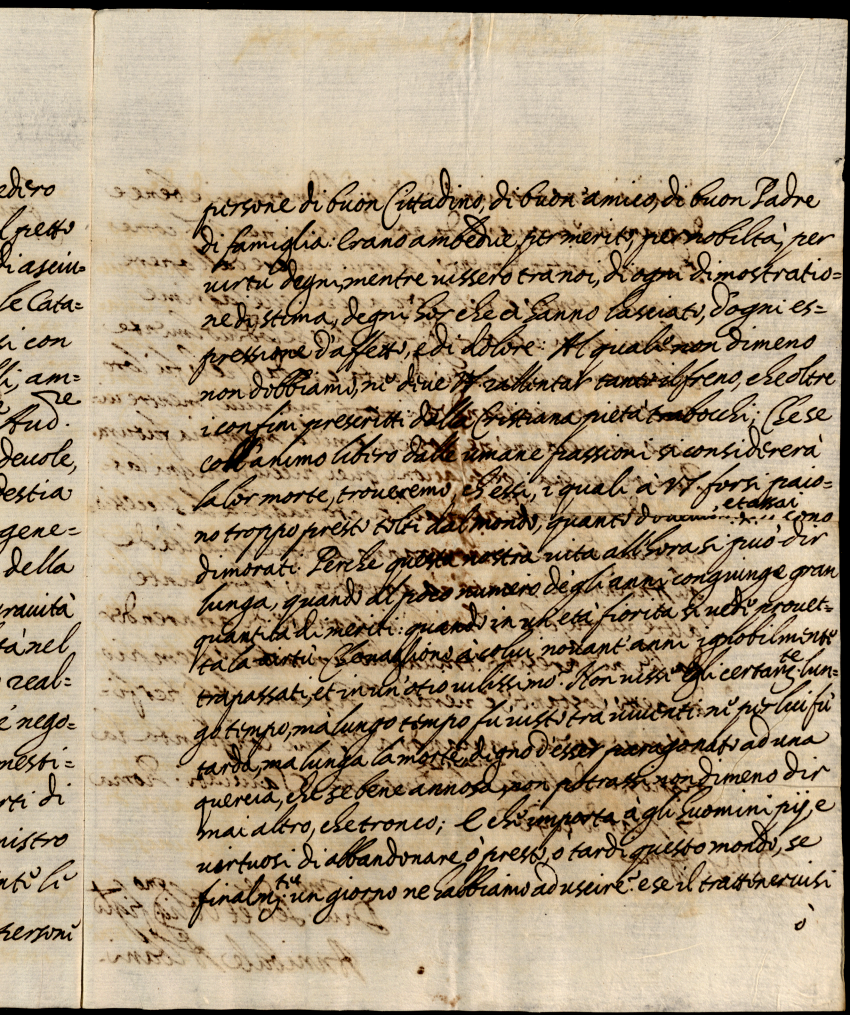 edero
l petto
di asciu=
le Cata=
si con
li, am=
Aud.ze
deuole,
destia
gene=
della
grauità
tà nel
real=
è nego=
mesti=
rti di
nistro
nte le
persone
persone di buon Cittadino, di buon' amico, di buon Padre
di famiglia. Erano ambedue per merito, per nobiltà, per
virtù degni, mentre uissero tra noi, di ogni dimostratio=
ne di stima, degni hor che ci hanno lasciato, d'ogni es=
pressione d'affetto, e di dolore. Al quale non dimeno
non dobbiamo, ne deue VS rallentar tanto il freno, che oltre
i confini prescritti dalla Cristiana pietà trabocchi; Che se
coll'animo libero dalle umane passioni si considererà
la lor morte, troueremo, ch'essi, i quali à VS. forsi paio=
no troppo presto tolti dal mondo, quanto doueuano et assai ci sono
dimorati. Perche questa nostra uita all'hora si può dir
lunga, quando al poco numero degli anni congiunge gran
quantità di meriti: quando in un'età fiorita si uede prouet=
ta la uirtù. Che uagliono à colui nouant'anni ignobilmente
trapassati, et in un'otio uilissimo? Non uisse egli certam.te lun=
go tempo, mà lungo tempo fù uisto tra uiuenti: ne per lui fù
tarda, ma lunga la morte, degno d'esser paragonato ad una
quercia, che se bene annosa, non potrassi nondimeno dir
mai altro, che tronco; E che importa à gli huomini pij, e
uirtuosi di abbandonare ò presto, ò tardi questo mondo, se
finalm.te un giorno ne habbiamo ad uscire? e se il tratteneruisi
ò